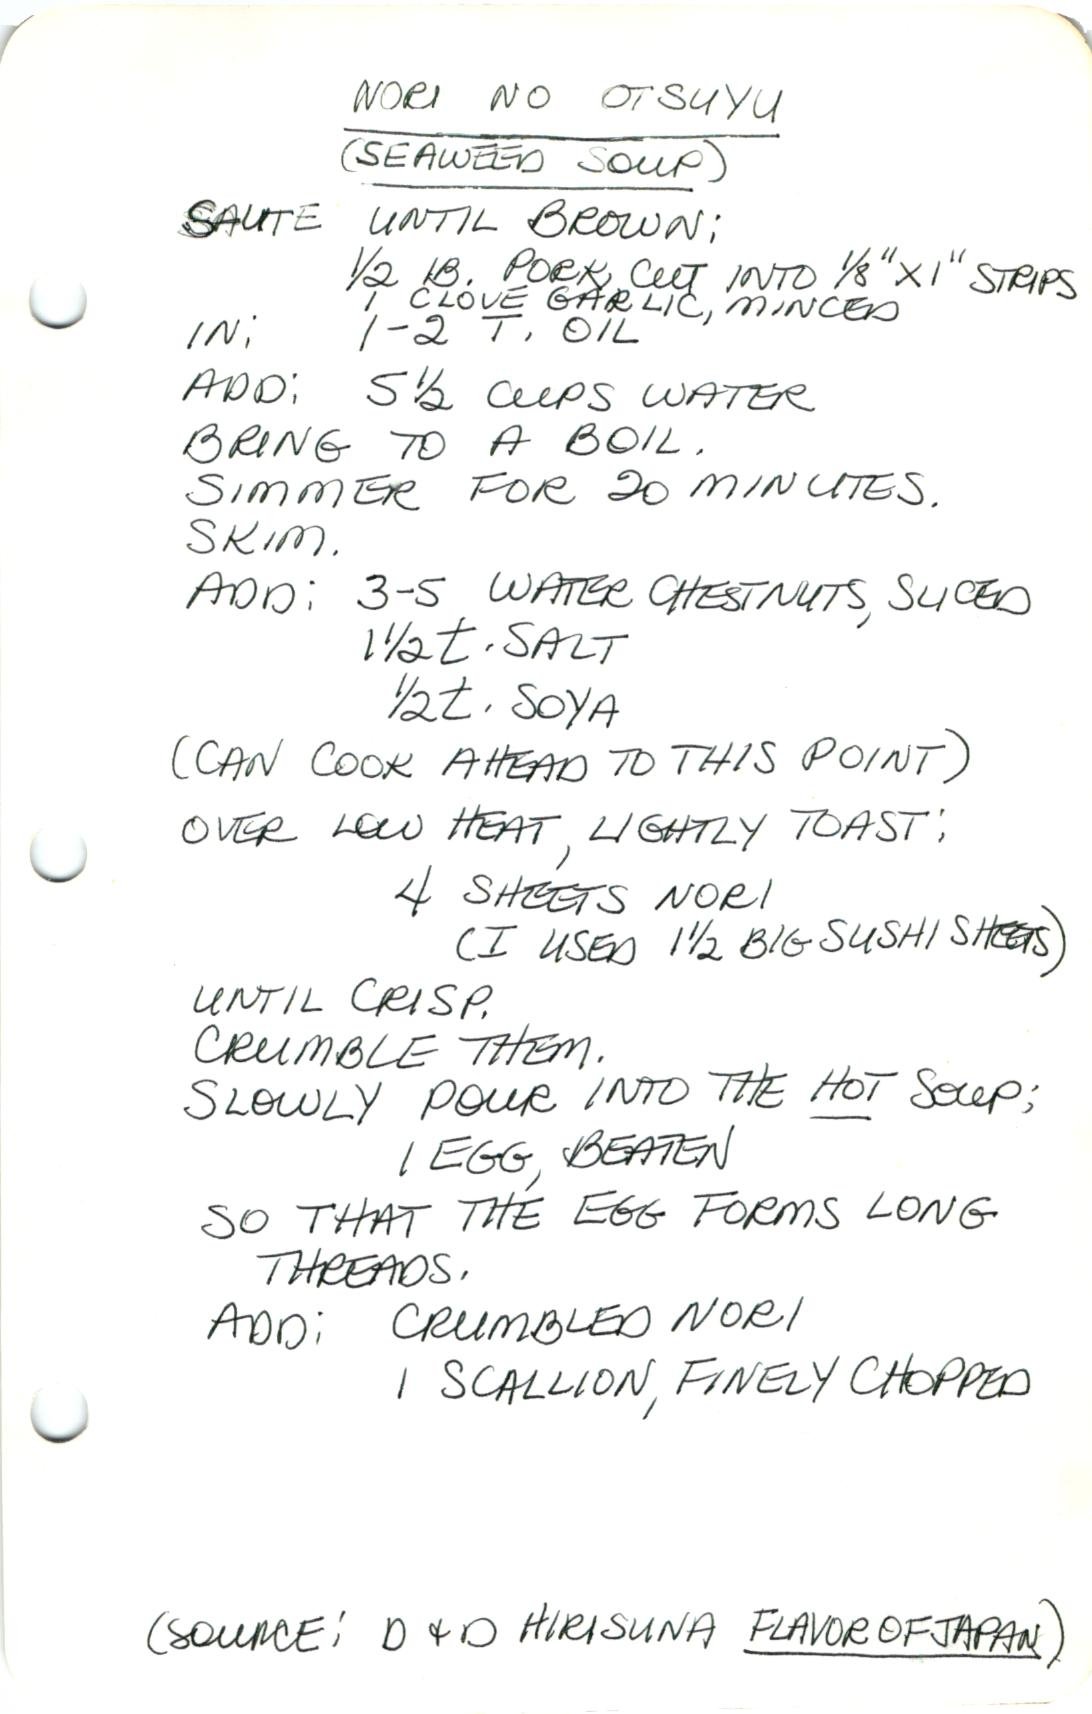 NORI NO OTSUYU
(SEAWEED SOUP)
SAUTE UNTIL BROWN:
1/2 LB. PORK, CUT INTO 1/8" X 1" STRIPS
1 CLOVE GARLIC, MINCED
IN: 1-2 T. OIL
ADD: 5 1/2 CUPS WATER
BRING TO A BOIL.
SIMMER FOR 20 MINUTES.
SKIM.
ADD: 3-5 WATER CHESTNUTS, SLICED
1 1/2 t. SALT
1/2 t. SOYA
(CAN COOK AHEAD TO THIS POINT)
OVER LOW HEAT, LIGHTLY TOAST:
4 SHEETS NORI
(I USED 1 1/2 BIG SUSHI SHEETS)
UNTIL CRISP.
CRUMBLE THEM.
SLOWLY POUR INTO THE HOT SOUP:
1 EGG, BEATEN
SO THAT THE EGG FORMS LONG
THREADS.
ADD: CRUMBLED NORI
1 SCALLION, FINELY CHOPPED
(SOURCE: D & D HIRISUNA FLAVOR OF JAPAN)